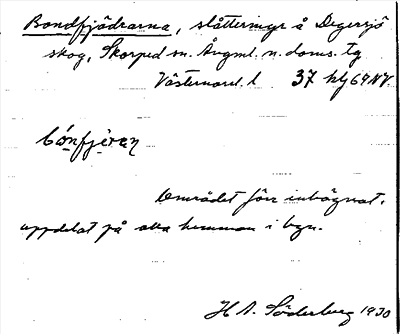 Bondfjädrarna, slåttermyr å Degersjö
skog, Skorped sn. Ångml. n. doms. tg
Västernorrl. l 37 kbl 69 NV.
Området förr inhägnat,
uppdelat på alla hemman i byn.
H A. Söderberg 1930